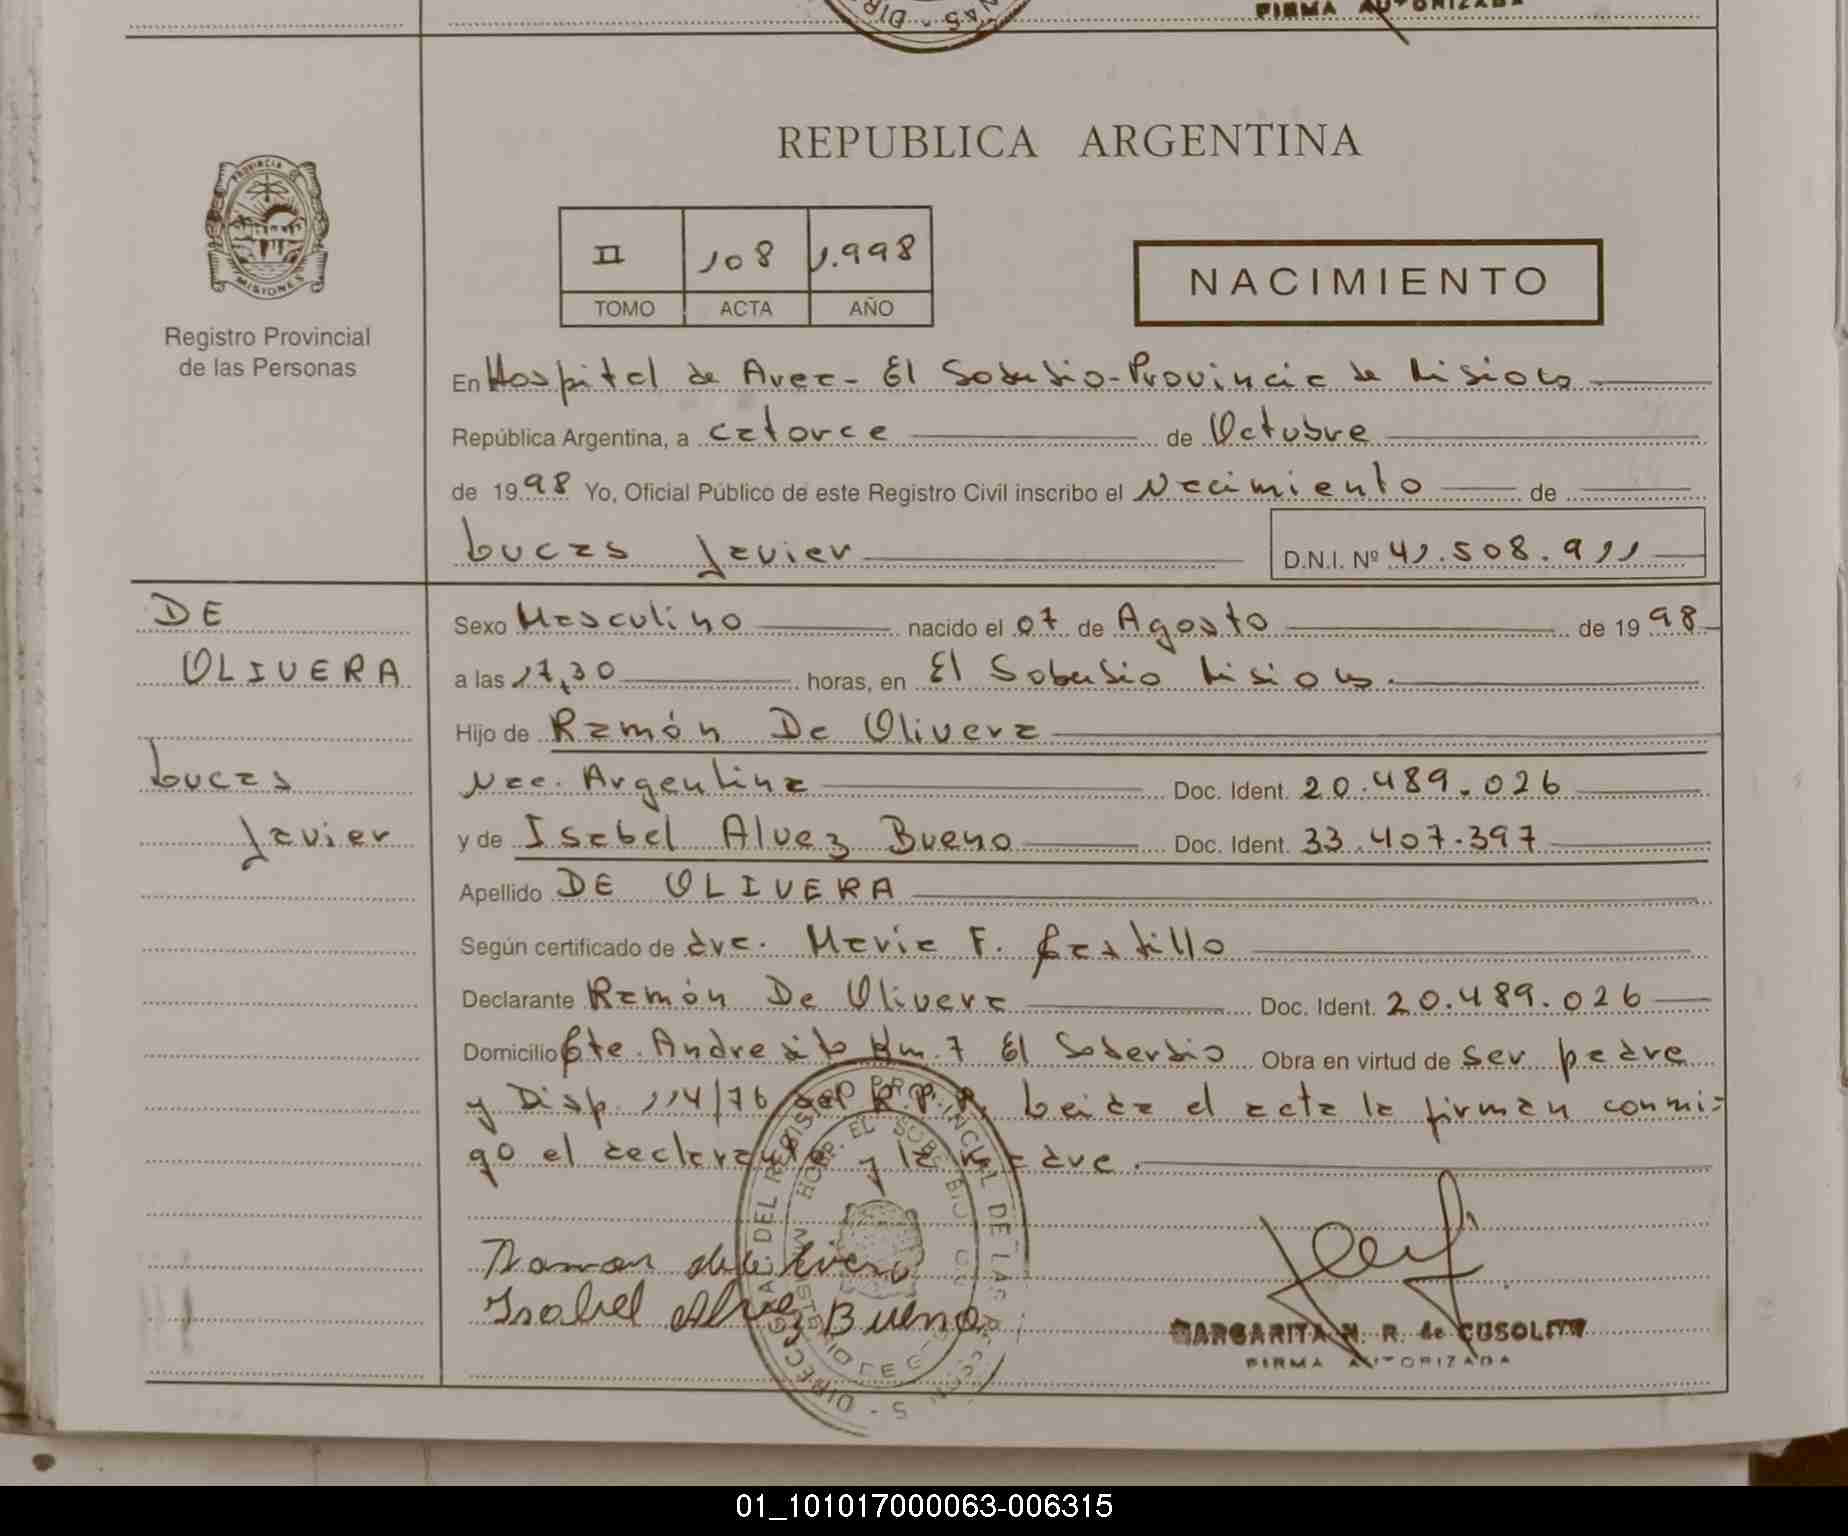 FIRMA AUTORIZADA
REPUBLICA ARGENTINA
PROVINCIA DE
MISIONES
Registro Provincial
de las Personas
II 108 1.998
TOMO ACTA AÑO
NACIMIENTO
En Hospital de Area - El Soberbio - Provincia de Misiones
República Argentina, a catorce de Octubre
de 1998 Yo, Oficial Público de este Registro Civil inscribo el Nacimiento de
Lucas Javier D.N.I. Nº 41.508.911
DE
OLIVERA
Lucas
Javier
Sexo Masculino nacido el 07 de Agosto de 1998
a las 17,30 horas, en El Soberbio Misiones.
Hijo de Ramón De Olivera
Nac. Argentina Doc. Ident. 20.489.026
y de Isabel Alvez Bueno Doc. Ident. 33.407.397
Apellido DE OLIVERA
Según certificado de dra. Maria F. Castillo
Declarante Ramón De Olivera Doc. Ident. 20.489.026
Domicilio Cte. Andresito Km. 7 El Soberbio Obra en virtud de ser padre
y Disp. 114/76 del R.P.P. Leida el acta la firman conmi=
go el declarante y la madre.
Ramon de Olivera
Isabel Alvez Bueno
MARGARITA N. R. de CUSOLITO
FIRMA AUTORIZADA
01_101017000063-006315